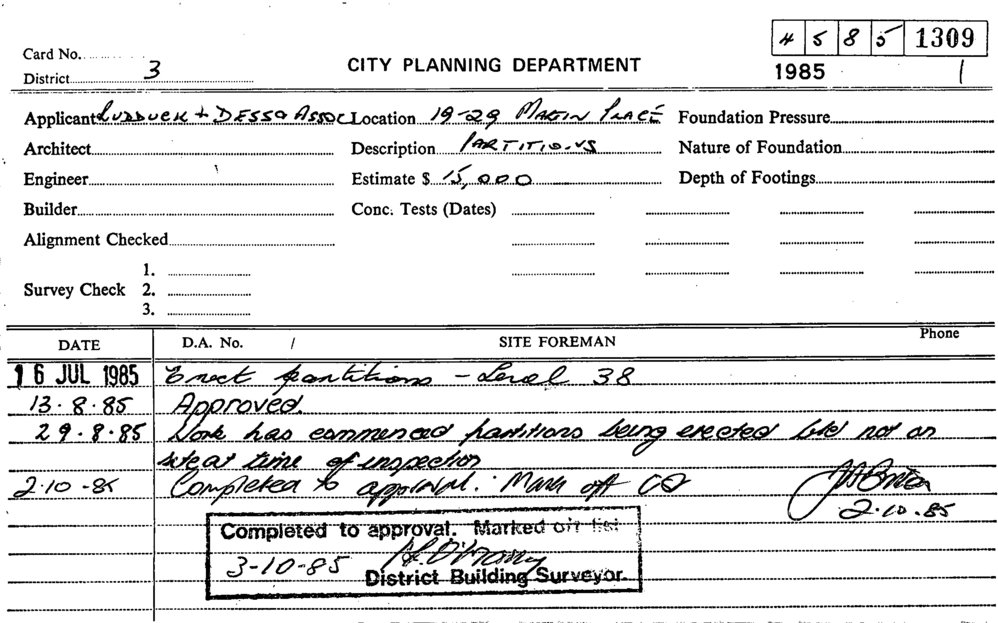 45 85 1309
Card No.
District 3 CITY PLANNING DEPARTMENT 1985 1
Applicant Rudduck + Desso Assoc Location 19-29 Martin Place Foundation Pressure
Architect Description Partitions Nature of Foundation
Engineer Estimate $ 15,000 Depth of Footings
Builder Conc. Tests (Dates)
Alignment Checked
1.
Survey Check 2.
3.
DATE D.A. No. / SITE FOREMAN Phone
16 JUL 1985 Erect partitions - Level 38
13.8.85 Approved.
29.8.85 Work has commenced partitions being erected not on
site at time of inspection
2.10.85 Completed to approval. Mark off
2.10.85
Completed to approval. Marked off list
3-10-85
District Building Surveyor.